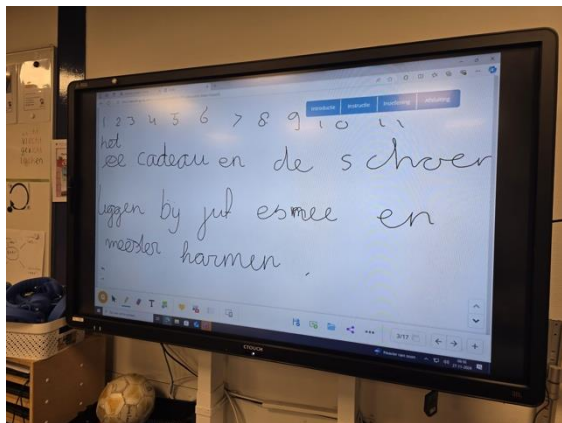 Introductie Instructie Inoefening Afsluiting
1 2 3 4 5 6 7 8 9 10 11
het
cadeau en de schoen
liggen by juf esmee en
meester harmen.
3/17
CTOUCH